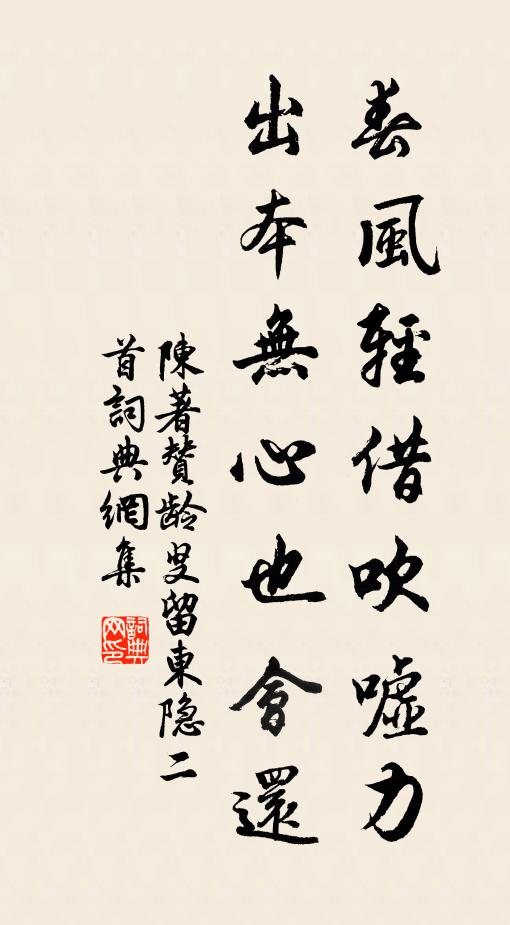 春風輕借吹噓力
出本無心也會還
陳著贊龄叟留東隐二
首詞典網集
詞典
网印